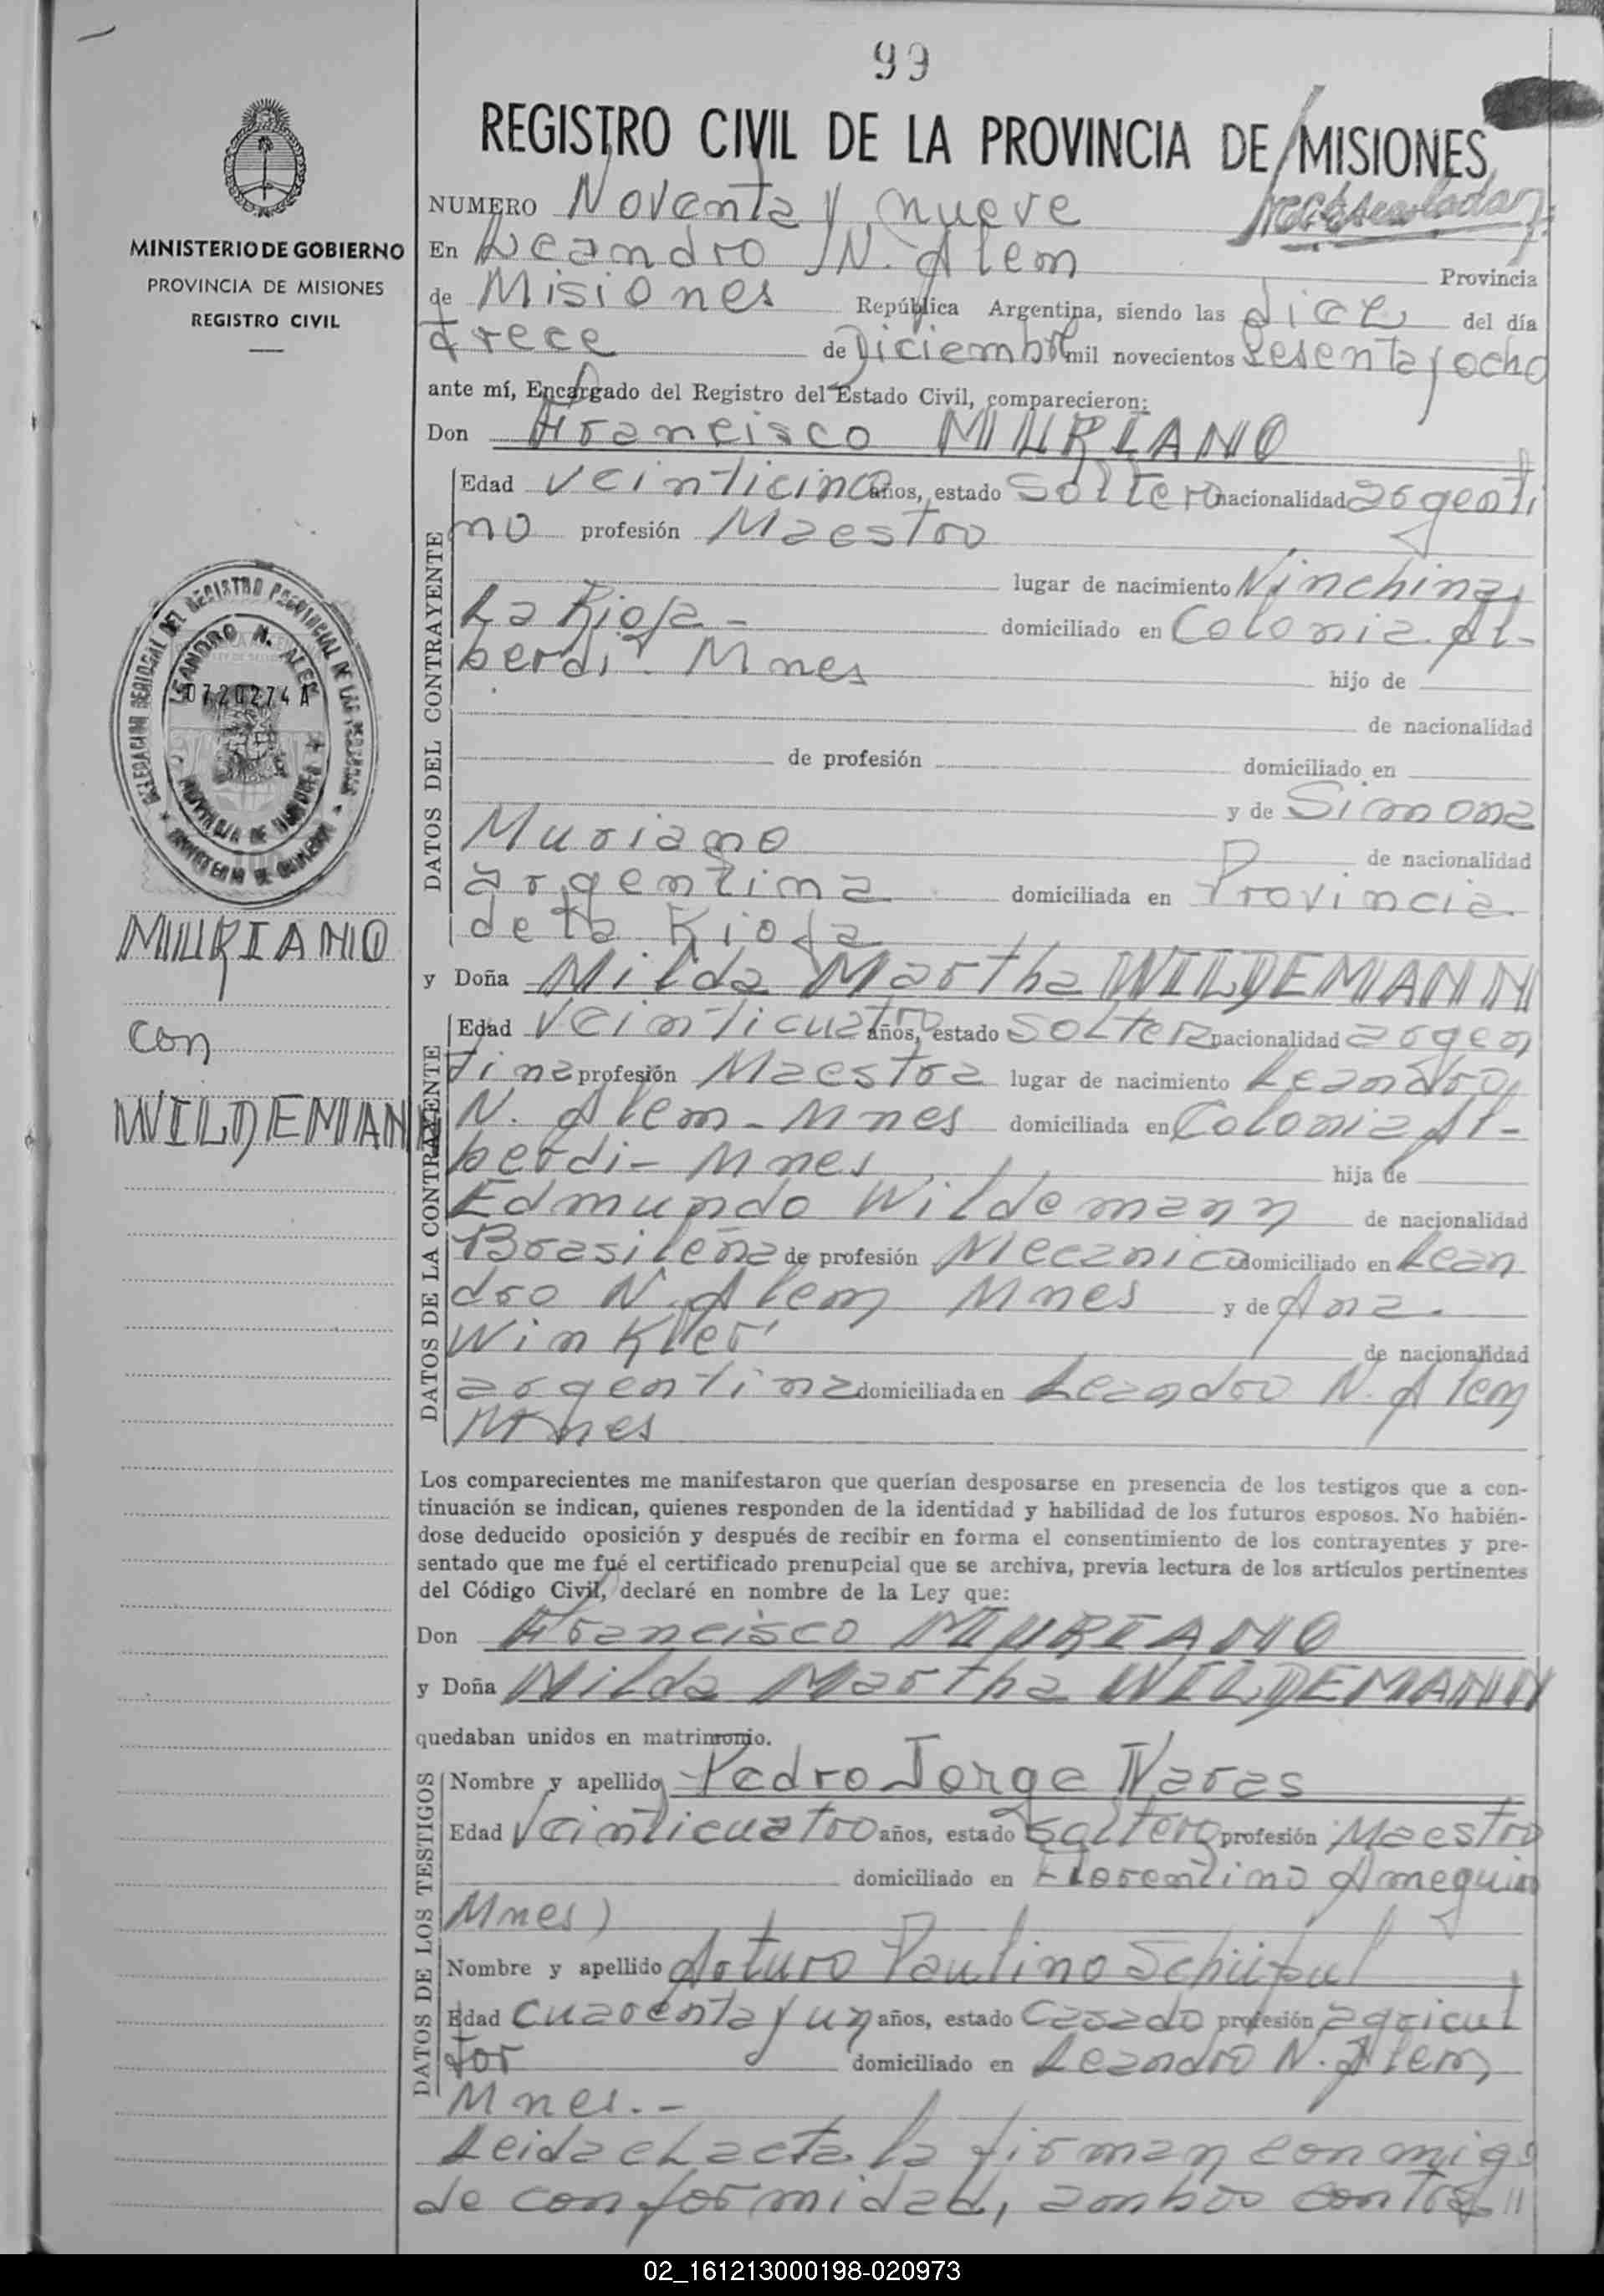 99
REGISTRO CIVIL DE LA PROVINCIA DE MISIONES
MINISTERIO DE GOBIERNO
PROVINCIA DE MISIONES
REGISTRO CIVIL
LEANDRO N. ALEM
0720274A
PROVINCIA DE MISIONES
MURIANO
con
WILDEMANN
NUMERO Noventa y nueve
En Leandro N. Alem Provincia
de Misiones República Argentina, siendo las diez del día
trece de Diciembre mil novecientos sesenta y ocho
ante mí, Encargado del Registro del Estado Civil, comparecieron:
Don Francisco MURIANO
DATOS DEL CONTRAYENTE
Edad veinticinco años, estado soltero nacionalidad argenti
no profesión Maestro
lugar de nacimiento Vinchina,
La Rioja - domiciliado en Colonia Al-
berdi - Mnes hijo de
de nacionalidad
de profesión domiciliado en
y de Simona
Muriano de nacionalidad
argentina domiciliada en Provincia
de la Rioja
y Doña Milda Martha WILDEMANN
DATOS DE LA CONTRAYENTE
Edad veinticuatro años, estado soltera nacionalidad argen
tina profesión Maestra lugar de nacimiento Leandro
N. Alem - Mnes domiciliada en Colonia Al-
berdi - Mnes hija de
Edmundo Wildemann de nacionalidad
Brasileña de profesión Mecanico domiciliado en Lean
dro N. Alem Mnes y de Ana
Winkler de nacionalidad
argentina domiciliada en Leandro N. Alem
Mnes
Los comparecientes me manifestaron que querían desposarse en presencia de los testigos que a con-
tinuación se indican, quienes responden de la identidad y habilidad de los futuros esposos. No habién-
dose deducido oposición y después de recibir en forma el consentimiento de los contrayentes y pre-
sentado que me fué el certificado prenupcial que se archiva, previa lectura de los artículos pertinentes
del Código Civil, declaré en nombre de la Ley que:
Don Francisco MURIANO
y Doña Milda Martha WILDEMANN
quedaban unidos en matrimonio.
DATOS DE LOS TESTIGOS
Nombre y apellido Pedro Jorge Naras
Edad veinticuatro años, estado soltero profesión Maestro
domiciliado en Florentino Ameguin
Mnes)
Nombre y apellido Arturo Paulino
Edad cuarenta y un años, estado casado profesión agricul
tor domiciliado en Leandro N. Alem
Mnes.-
Leida el acta la firman conmigo
de conformidad, ambos contra//
02_161213000198-020973